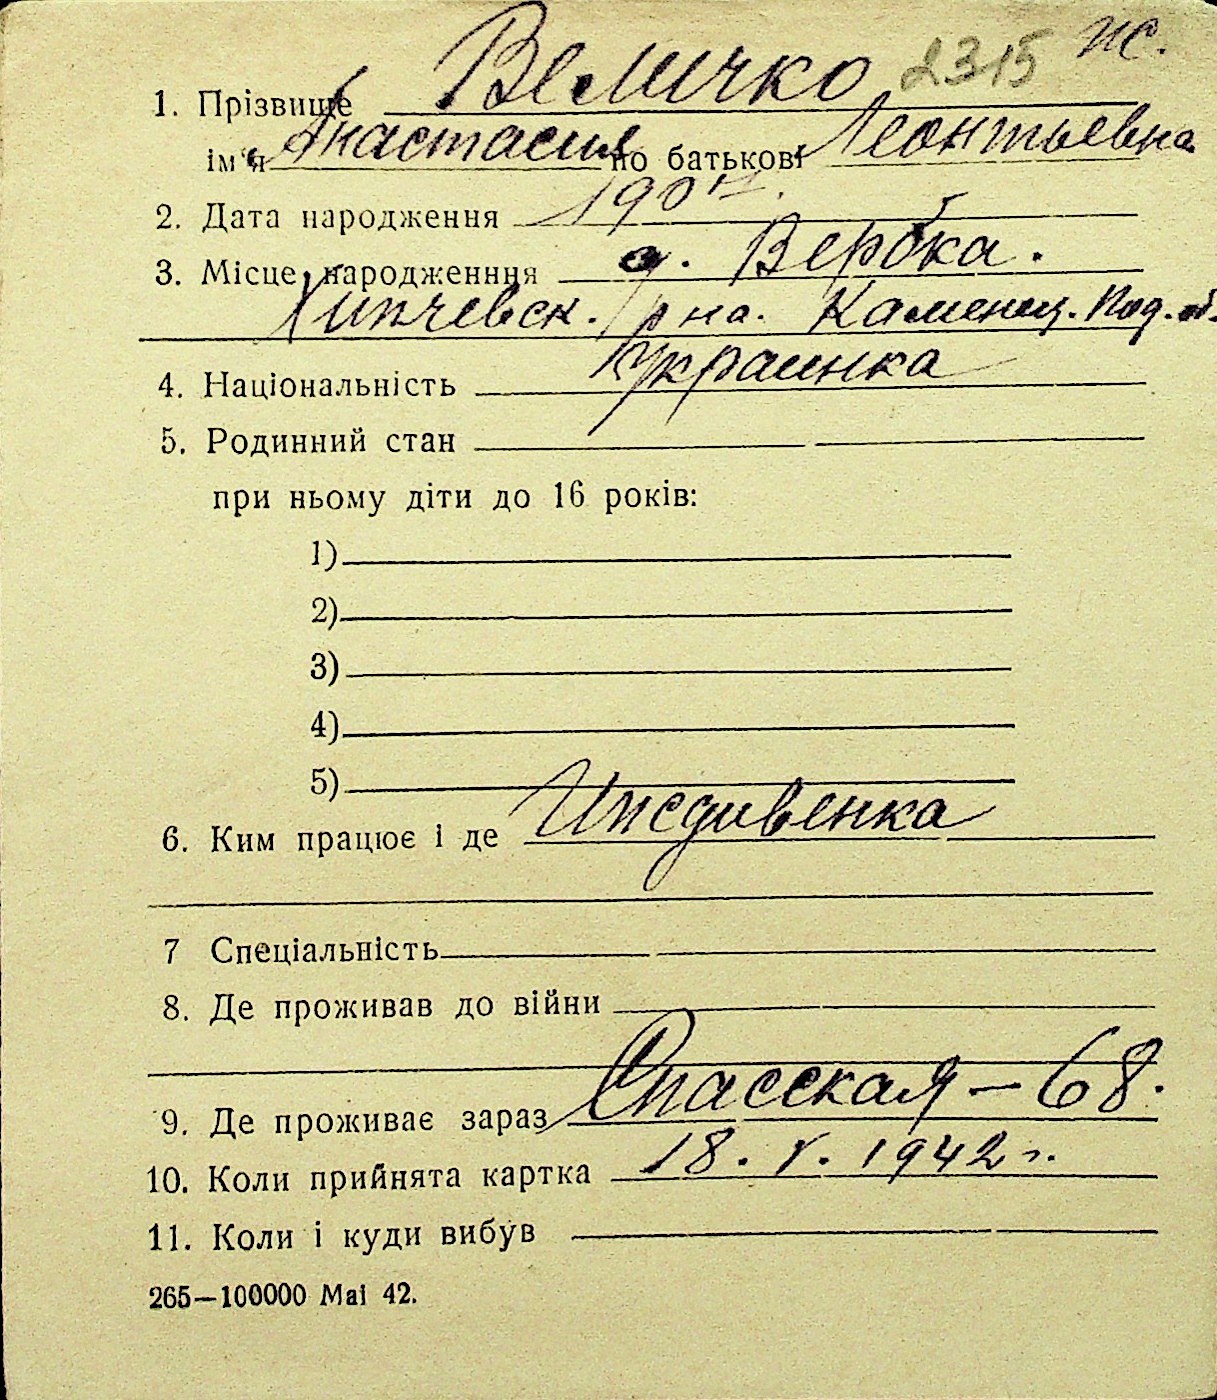 2315 ис.
1. Прізвище Величко
ім'я Анастасия по батькові Леонтьевна
2. Дата народження
3. Місце народженння д. Вербка.
р на. Каменец. Под. об.
4. Національність Украинка
5. Родинний стан
при ньому діти до 16 років:
1)
2)
3)
4)
5)
6. Ким працює і де Иждивенка
7 Спеціальність
8. Де проживав до війни
9. Де проживає зараз Спасская - 68.
10. Коли прийнята картка 18. V. 1942 г.
11. Коли і куди вибув
265—100000 Маі 42.